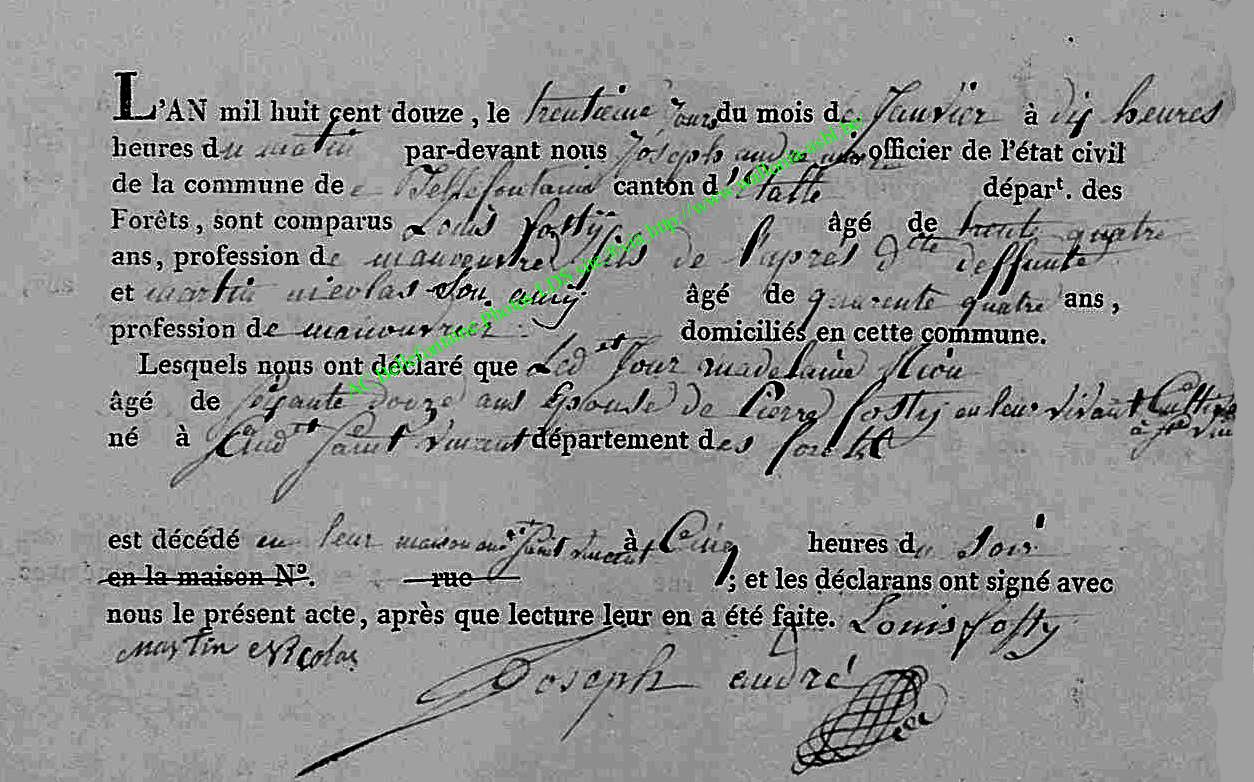 L'AN mil huit cent douze, le trentieme Jours du mois de Janvier à dix heures
heures du matin par-devant nous Joseph andre officier de l'état civil
de la commune de Bellefontaine canton d'Etalle départ. des
Forêts, sont comparus Louis fossÿ âgé de trente quatre
ans, profession de manouvrier fils de l'apres dtte deffunte
et martin nicolas Son amij âgé de quarente quatre ans,
profession de manouvrier domiciliés en cette commune.
Lesquels nous ont déclaré que Led.it Jour madelaine
âgé de Soisante douze ans Epouse de Pierre fossij en leur vivant Cultiv
né à Saint vincant département des foretz
est décédé en leur maison Saint vincent à Cinq heures du Soir
en la maison N°. rue ; et les déclarans ont signé avec
nous le présent acte, après que lecture leur en a été faite. Louis fossy
martin Nicolas
Joseph andré
AC Bellefontaine Photos LDS